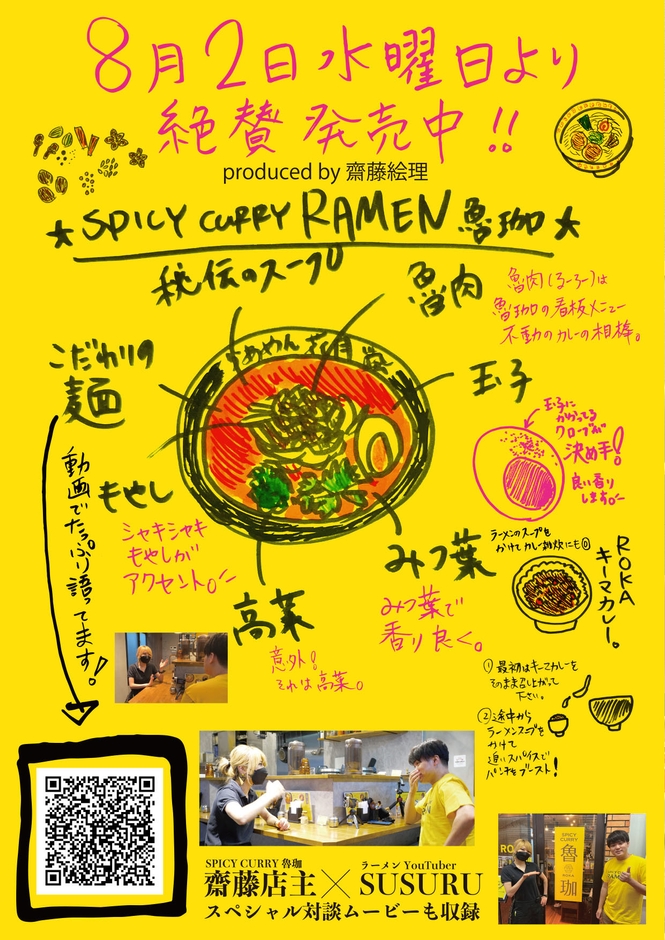 8月2日水曜日より
絶賛発売中!!
produced by 齋藤絵理
★SPICY CURRY RAMEN 魯珈★
秘伝のスープ
魯肉
魯肉(ろーろー)は
魯珈の看板メニュー
不動のカレーの相棒。
こだわりの
麺
らぁめん 花月 嵐
玉子
玉子に
かかってる
クローブが
決め手!
良い香り
します。
動画でたっぷり語ってます!
もやし
シャキシャキ
もやしが
アクセント。
高菜
意外!
それは高菜。
みつ葉
みつ葉で
香り良く。
ラーメンのスープを
かけてカレー雑炊にも◎
ROKA
キーマカレー。
① 最初はキーマカレーを
そのまま召し上がって
下さい。
②途中から
ラーメンスープを
かけて
追いスパイスで
パンチをブースト!
SPICY CURRY 魯珈
齋藤店主
×
ラーメン YouTuber
SUSURU
スペシャル対談ムービーも収録
SPICY
CURRY
魯
珈